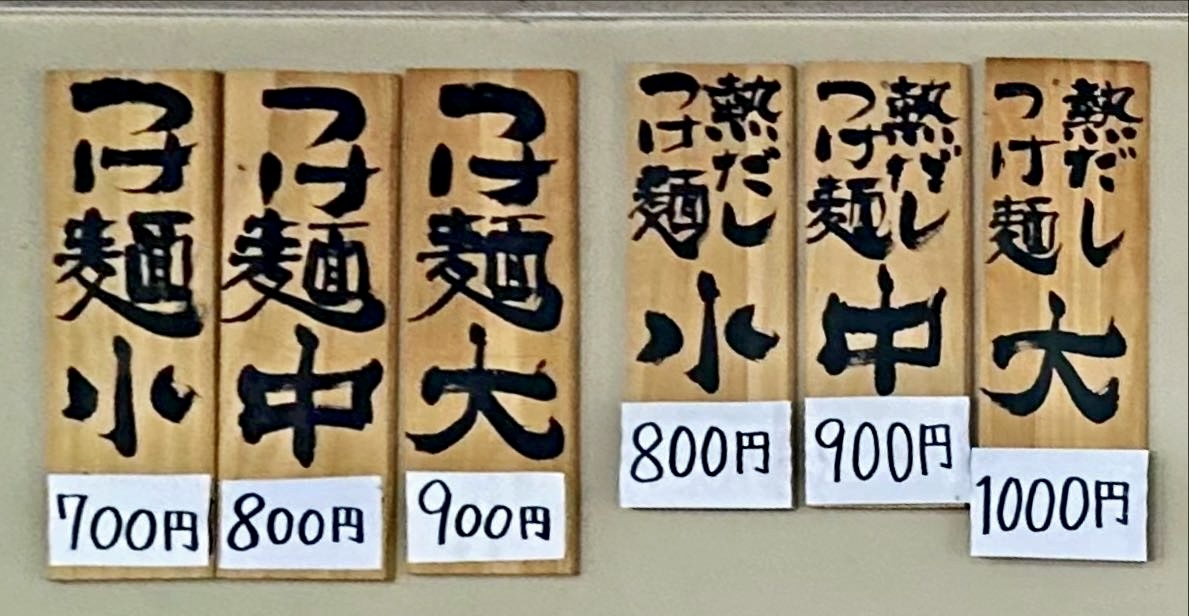 つけ麺小
700円
つけ麺中
800円
つけ麺大
900円
熱だし
つけ麺
小
800円
熱だし
つけ麺
中
900円
熱だし
つけ麺
大
1000円